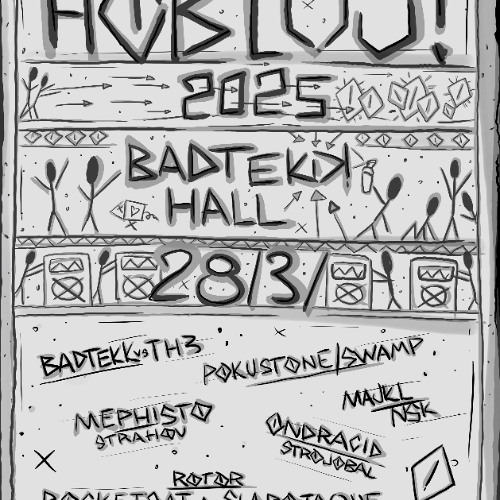 2025
BADTEKK
HALL
28/3/
BADTEKK vs TH3
POKUSTONE/SWAMP
MAJKL
NSK
MEPHISTO
STRAHOV
ONDRACID
STROJOBAL
ROTOR